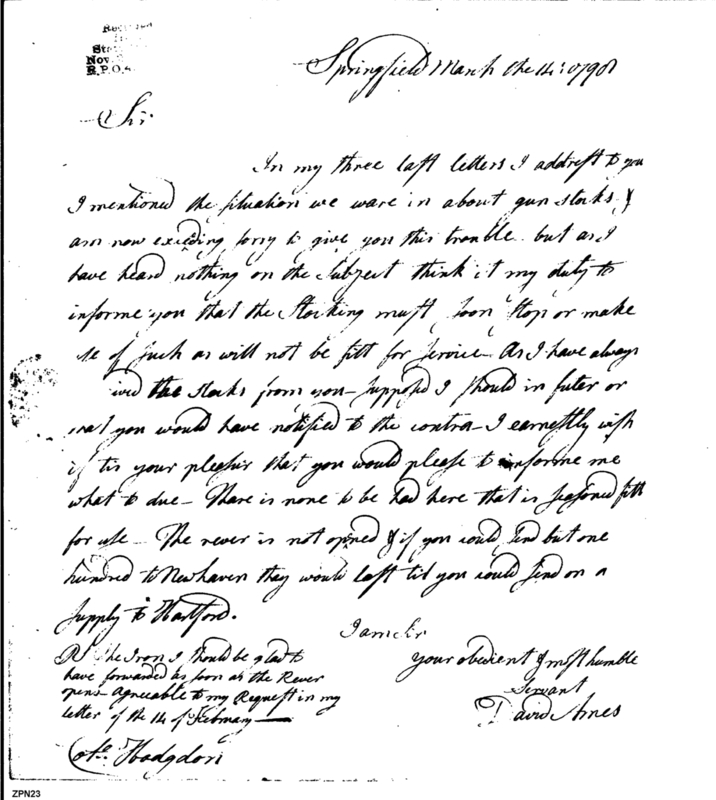 Received
Nov.
R.P.O.
Springfield March the 14: 1798
Sir
In my three last letters I addrest to you
I mentioned the situation we ware in about gun stocks, &
am now exieding sorry to give you this trouble but as I
have heard nothing on the Subject think it my duty to
informe you that the Stocking must soon stop or make
se of such as will not be fitt for service As I have always
ived the stocks from you supposed I should in futer or
that you would have notified to the contra I earnestly wish
if tis your pleasir that you would please to informe me
what to due Thare is none to be had here that is seasoned fitt
for use The rever is not opned & if you could send but one
hundred to Newhaven they would last til you could send on a
supply to Hartford.
I am Sir
your obedient & most humble
Servant
David Ames
PS The Iron I should be glad to
have forwarded as soon as the Rever
opens agreeable to my Request in my
letter of the 14 of February
Hodgdon
ZPN23